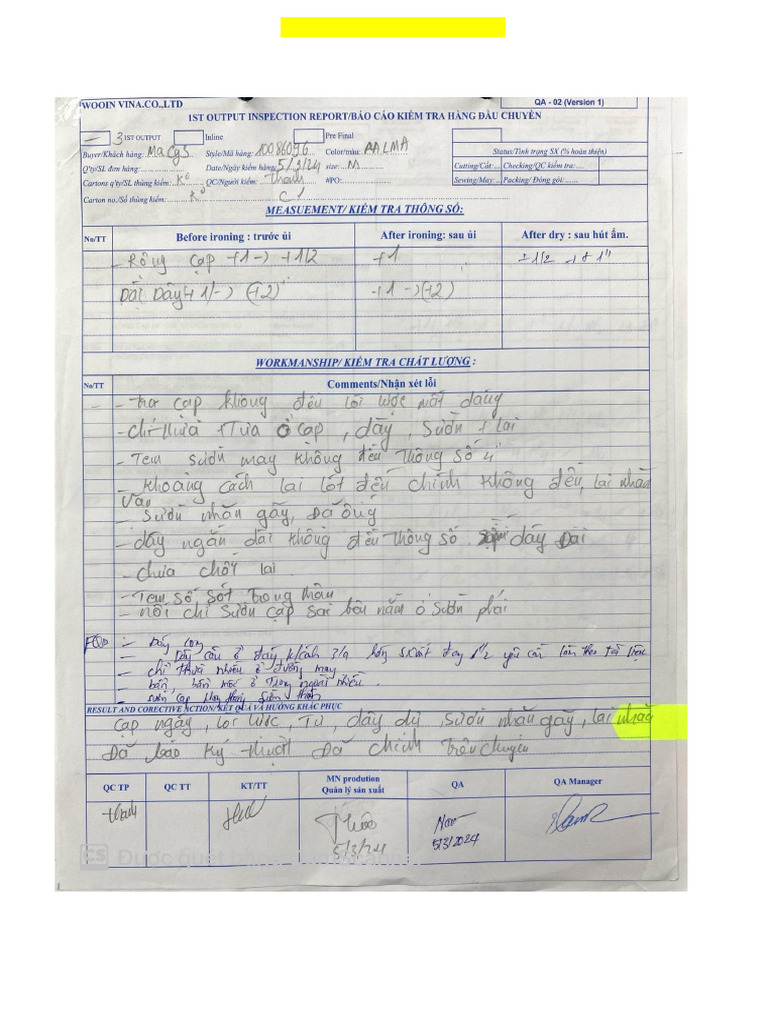 WOOIN VINA.CO.,LTD
QA - 02 (Version 1)
1ST OUTPUT INSPECTION REPORT/BÁO CÁO KIỂM TRA HÀNG ĐẦU CHUYỀN
3 1ST OUTPUT Inline Pre Final
Buyer/Khách hàng: Style/Mã hàng: 10086096 Color/màu: Status/Tình trạng SX (% hoàn thiện)
Q'ty/SL đơn hàng: Date/Ngày kiểm hàng: 5/3/24 size: M Cutting/Cắt:... Checking/QC kiểm tra:....
Cartons q'ty/SL thùng kiểm: K° QC/Người kiểm: Thanh #PO: Sewing/May:... Packing/ Đóng gói:......
Carton no./Số thùng kiểm: K° C1
MEASUEMENT/ KIỂM TRA THÔNG SỐ:
No/TT Before ironing : trước ủi After ironing: sau ủi After dry : sau hút ẩm.
- Rộng cạp +1 -> +1/2 +1
Dài Dây +1 -> (+2) +1 -> (+2)
WORKMANSHIP/ KIỂM TRA CHẤT LƯỢNG :
No/TT Comments/Nhận xét lỗi
- Tra cạp không đều lòi lược mất dáng
- chỉ thừa + tưa ở cạp, dây, sườn + lai
- Tem sườn may không đều thông số 4"
- Khoảng cách lai lót đến chính không đều, lai nhăn
vặn
- Sườn nhăn gãy, Đá ống
- dây ngắn dài không đều thông số dây Dài
- chưa chốt lai
- Tem số sót trong thân
- nối chỉ sườn cạp sai bên nằm ở sườn phải
- chỉ thừa nhiều ở đường may
- bẩn, trong ngoài nhiều.
RESULT AND CORECTIVE ACTION/KẾT QUẢ VÀ HƯỚNG KHẮC PHỤC
Cạp ngáy, lòi lược, Tư, dây dư, sườn nhăn gãy, lai nhăn
Đã báo kỹ thuật Đã chỉnh Trên chuyền
QC TP QC TT KT/TT MN prodution QA QA Manager
Quản lý sản xuất
Thanh Thảo Nam
5/3/24 5/3/2024
CS Được quét